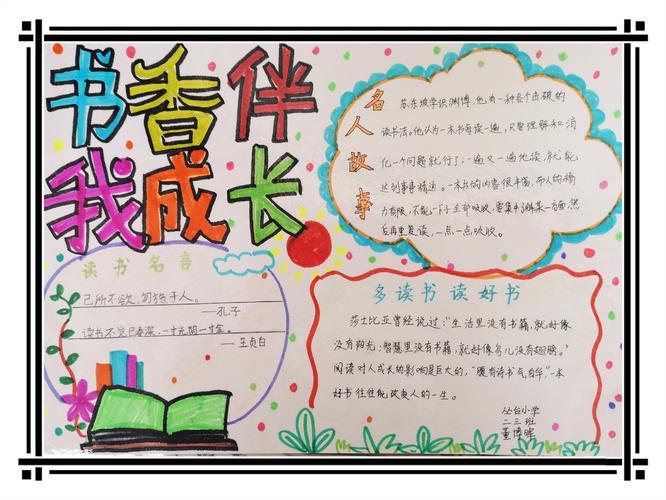 书香伴
我成长
名人故事
苏东坡学识渊博,他有一种各个击破的
读书法。他认为一本书每读一遍,只要理解和消
化一个问题就行了;一遍又一遍地读,就能
达到事事精通。一本书的内容很丰富,而人的精
力有限,不能一下子全部吸收,要集中了解某一方面,然
后再重复读,一点一点吸收。
读书名言
己所不欲,勿施于人。
——孔子
读书不觉已春深,一寸光阴一寸金。
——王贞白
多读书 读好书
莎士比亚曾经说过:“生活里没有书籍,就好像
没有阳光;智慧里没有书籍,就好像鸟儿没有翅膀。”
阅读对人成长的影响是巨大的,“腹有诗书气自华,”一本
好书往往能改变人的一生。
丛台小学
二三班
董博晖